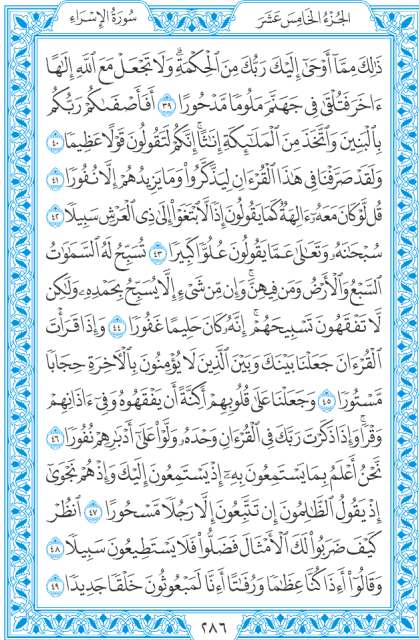 الجُزْءُ الخَامِسَ عَشَرَ سُورَةُ الإِسْرَاءِ
ذَٰلِكَ مِمَّآ أَوْحَىٰٓ إِلَيْكَ رَبُّكَ مِنَ ٱلْحِكْمَةِۗ وَلَا تَجْعَلْ مَعَ ٱللَّهِ إِلَٰهًا
ءَاخَرَ فَتُلْقَىٰ فِى جَهَنَّمَ مَلُومًا مَّدْحُورًا ٣٩ أَفَأَصْفَىٰكُمْ رَبُّكُم
بِٱلْبَنِينَ وَٱتَّخَذَ مِنَ ٱلْمَلَٰٓئِكَةِ إِنَٰثًاۚ إِنَّكُمْ لَتَقُولُونَ قَوْلًا عَظِيمًا ٤٠
وَلَقَدْ صَرَّفْنَا فِى هَٰذَا ٱلْقُرْءَانِ لِيَذَّكَّرُوا۟ وَمَا يَزِيدُهُمْ إِلَّا نُفُورًا ٤١
قُل لَّوْ كَانَ مَعَهُۥٓ ءَالِهَةٌ كَمَا يَقُولُونَ إِذًا لَّٱبْتَغَوْا۟ إِلَىٰ ذِى ٱلْعَرْشِ سَبِيلًا ٤٢
سُبْحَٰنَهُۥ وَتَعَٰلَىٰ عَمَّا يَقُولُونَ عُلُوًّا كَبِيرًا ٤٣ تُسَبِّحُ لَهُ ٱلسَّمَٰوَٰتُ
ٱلسَّبْعُ وَٱلْأَرْضُ وَمَن فِيهِنَّۚ وَإِن مِّن شَىْءٍ إِلَّا يُسَبِّحُ بِحَمْدِهِۦ وَلَٰكِن
لَّا تَفْقَهُونَ تَسْبِيحَهُمْۗ إِنَّهُۥ كَانَ حَلِيمًا غَفُورًا ٤٤ وَإِذَا قَرَأْتَ
ٱلْقُرْءَانَ جَعَلْنَا بَيْنَكَ وَبَيْنَ ٱلَّذِينَ لَا يُؤْمِنُونَ بِٱلْءَاخِرَةِ حِجَابًا
مَّسْتُورًا ٤٥ وَجَعَلْنَا عَلَىٰ قُلُوبِهِمْ أَكِنَّةً أَن يَفْقَهُوهُ وَفِىٓ ءَاذَانِهِمْ
وَقْرًاۚ وَإِذَا ذَكَرْتَ رَبَّكَ فِى ٱلْقُرْءَانِ وَحْدَهُۥ وَلَّوْا۟ عَلَىٰٓ أَدْبَٰرِهِمْ نُفُورًا ٤٦
نَّحْنُ أَعْلَمُ بِمَا يَسْتَمِعُونَ بِهِۦٓ إِذْ يَسْتَمِعُونَ إِلَيْكَ وَإِذْ هُمْ نَجْوَىٰٓ
إِذْ يَقُولُ ٱلظَّٰلِمُونَ إِن تَتَّبِعُونَ إِلَّا رَجُلًا مَّسْحُورًا ٤٧ ٱنظُرْ
كَيْفَ ضَرَبُوا۟ لَكَ ٱلْأَمْثَالَ فَضَلُّوا۟ فَلَا يَسْتَطِيعُونَ سَبِيلًا ٤٨
وَقَالُوٓا۟ أَءِذَا كُنَّا عِظَٰمًا وَرُفَٰتًا أَءِنَّا لَمَبْعُوثُونَ خَلْقًا جَدِيدًا ٤٩
٢٨٦